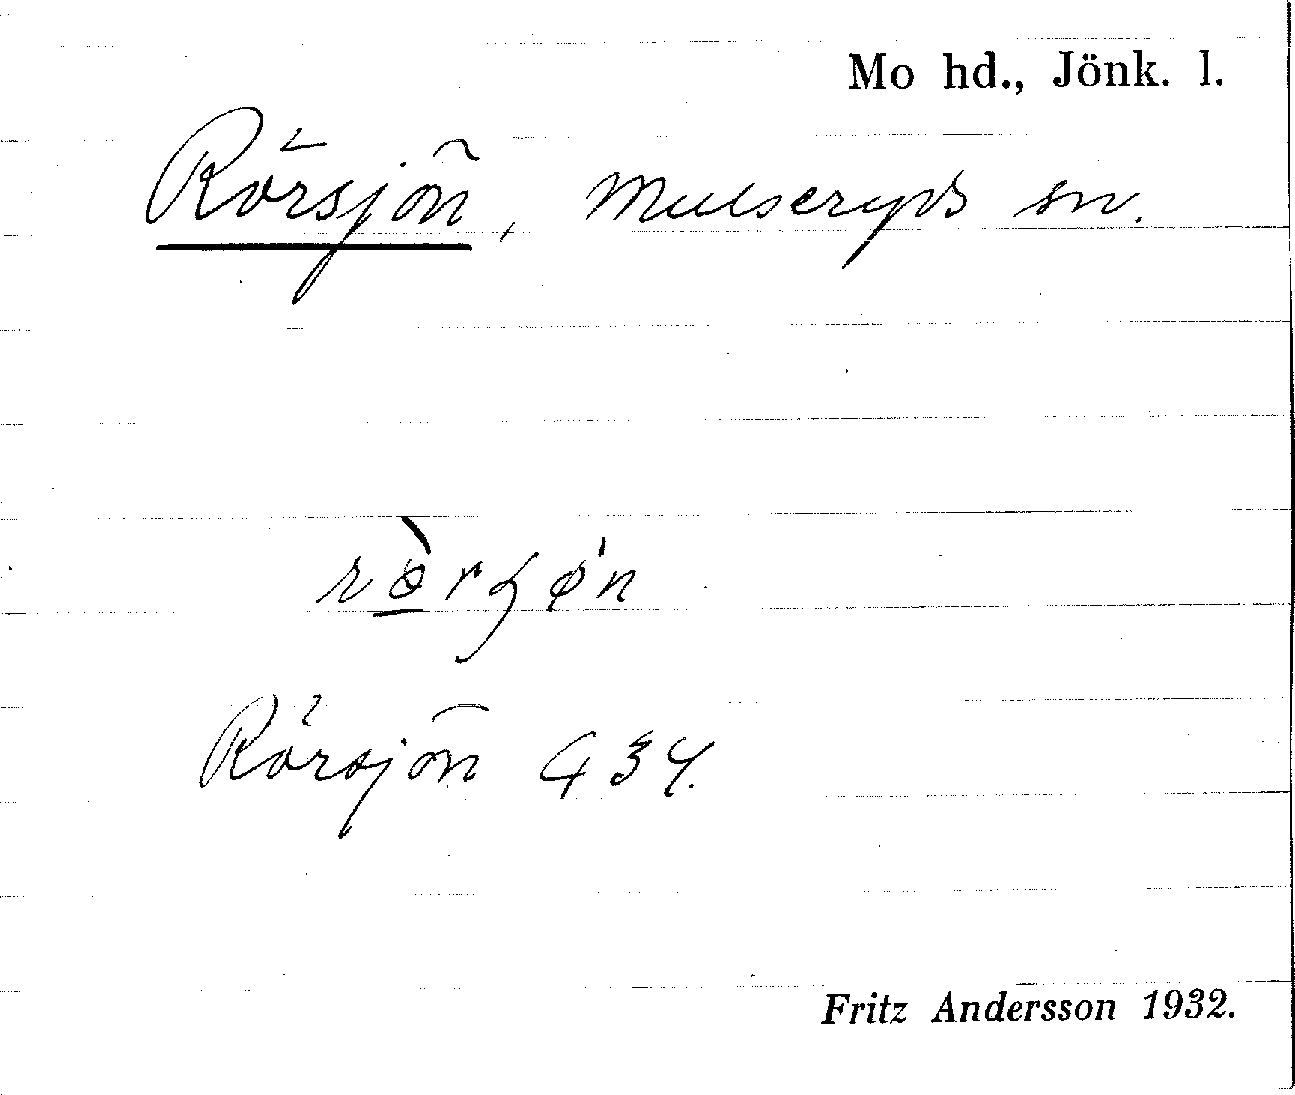 Mo hd., Jönk. l.
Rörsjön, Mulseryds sn.
rör
Rörsjön G34.
Fritz Andersson 1932.